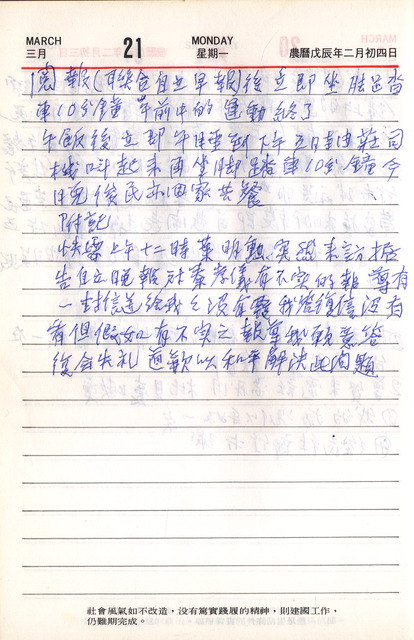 MARCH 21 MONDAY
三月 星期一 農曆戊辰年二月初四日
閱報(聯合自立早報)後立即坐脚踏
車10分鐘 午前中的運動終了
午飯後立即午睡到下午五日建莊司
機叫起來再坐脚踏車10分鐘今
晚後民亦回家共餐
附記
快要上午十二時葉明勲突恐來訪报
告自立晚報社秦孝儀有不實的報導有
一封信送給我之没有 我答復信還有
看但假如有不實之報導我願意答
復会失礼道歉以和平解決此問題
社會風氣如不改造，没有篤實踐履的精神，則建國工作，
仍難期完成。